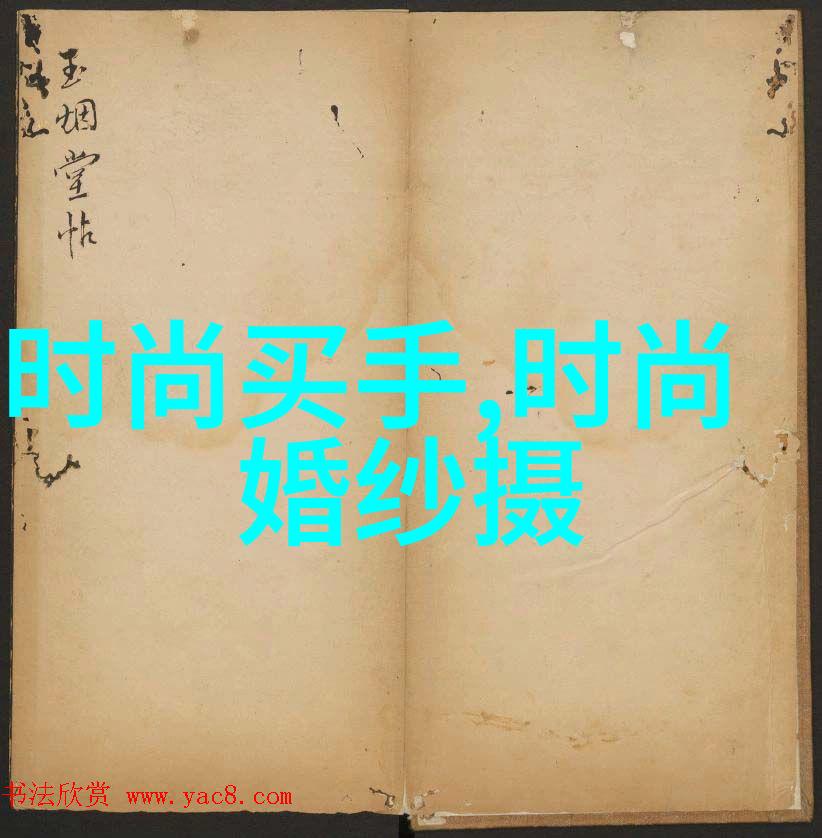 玉烟堂帖
时尚买手,时尚
婚纱摄
书法欣赏 www.yac8.com